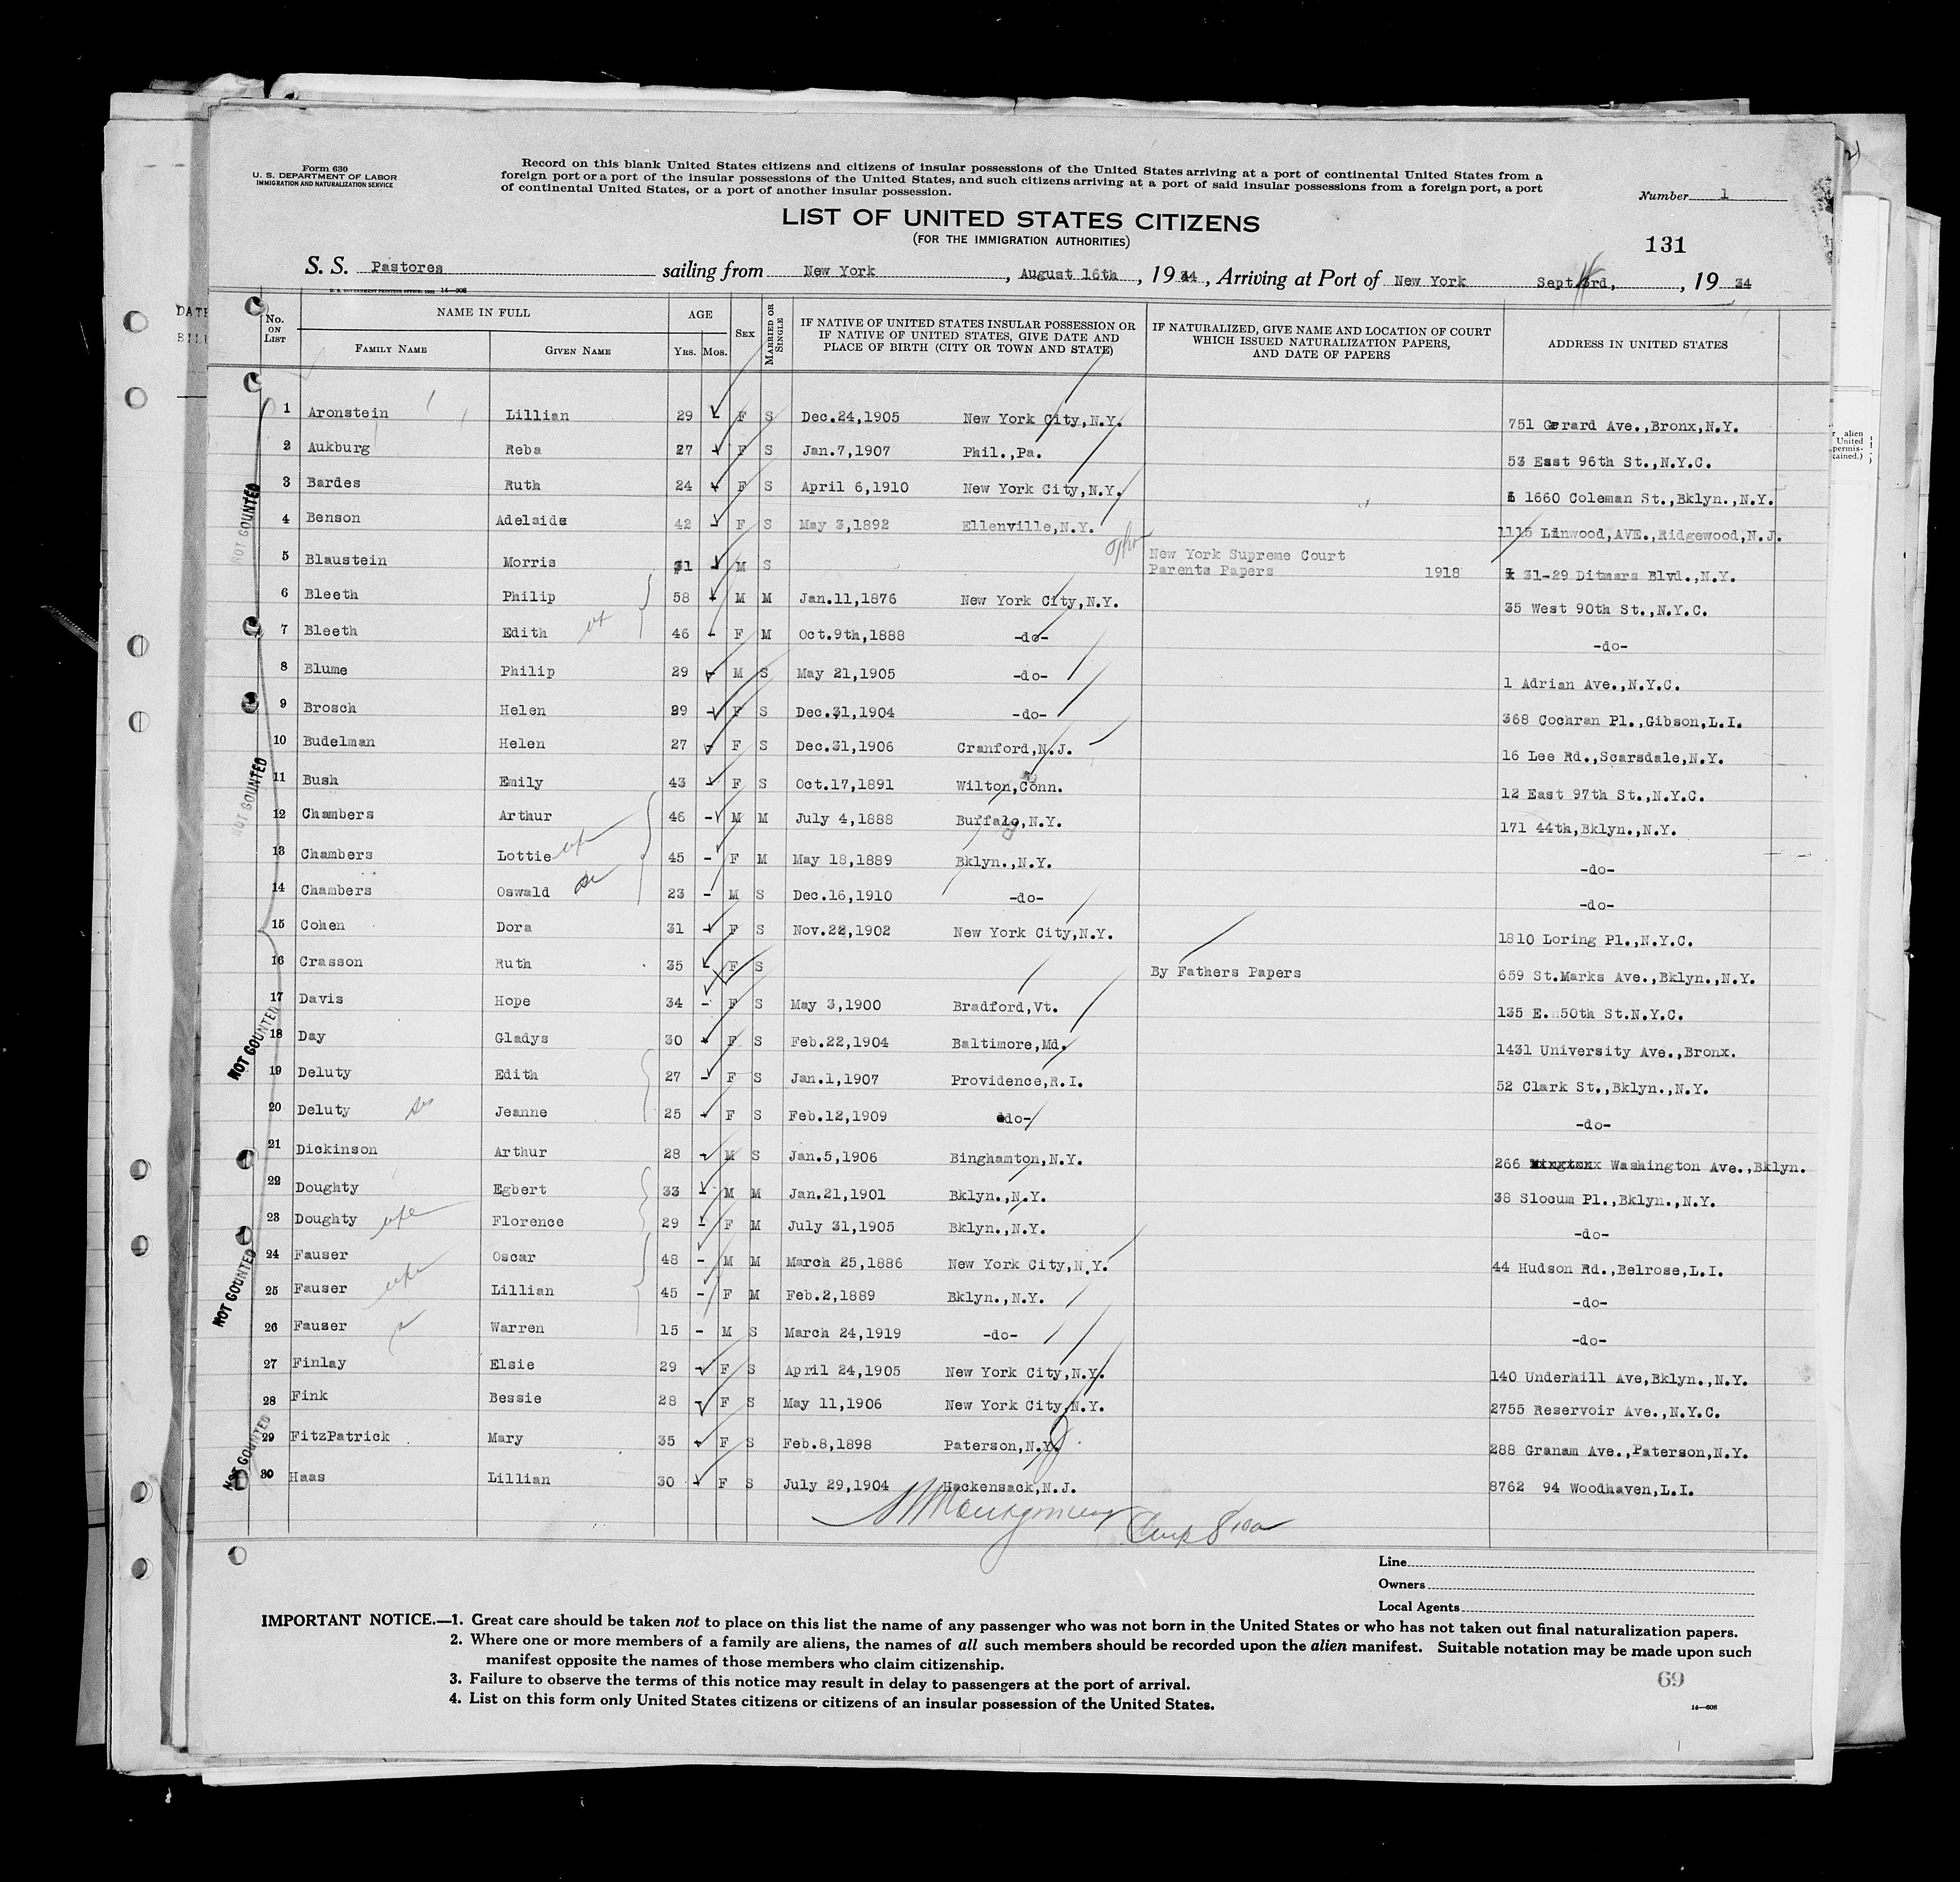 Form 630
U. S. DEPARTMENT OF LABOR
IMMIGRATION AND NATURALIZATION SERVICE
Record on this blank United States citizens and citizens of insular possessions of the United States arriving at a port of continental United States from a
foreign port or a port of the insular possessions of the United States, and such citizens arriving at a port of said insular possessions from a foreign port, a port
of continental United States, or a port of another insular possession.
Number 1
LIST OF UNITED STATES CITIZENS
(FOR THE IMMIGRATION AUTHORITIES)
131
S. S. Pastores sailing from New York, August 16th, 1934, Arriving at Port of New York Sept 3rd, 1934
No. ON LIST NAME IN FULL AGE SEX MARRIED OR SINGLE IF NATIVE OF UNITED STATES INSULAR POSSESSION OR IF NATIVE OF UNITED STATES, GIVE DATE AND PLACE OF BIRTH (CITY OR TOWN AND STATE) IF NATURALIZED, GIVE NAME AND LOCATION OF COURT WHICH ISSUED NATURALIZATION PAPERS, AND DATE OF PAPERS ADDRESS IN UNITED STATES
FAMILY NAME GIVEN NAME YRS. MOS.
1 Aronstein Lillian 29 F S Dec.24,1905 New York City,N.Y. 751 Gerard Ave.,Bronx,N.Y.
2 Aukburg Reba 27 F S Jan.7,1907 Phil.,Pa. 53 East 96th St.,N.Y.C.
3 Bardes Ruth 24 F S April 6,1910 New York City,N.Y. 1660 Coleman St.,Bklyn.,N.Y.
4 Benson Adelaide 42 - F S May 3,1892 Ellenville,N.Y. 1115 Linwood,AVE.,Ridgewood,N.J.
5 Blaustein Morris 31 - M S New York Supreme Court Parents Papers 1918 31-29 Ditmars Blvd.,N.Y.
6 Bleeth Philip 58 M M Jan.11,1876 New York City,N.Y. 35 West 90th St.,N.Y.C.
7 Bleeth Edith 46 - F M Oct.9th,1888 -do- -do-
8 Blume Philip 29 - M S May 21,1905 -do- 1 Adrian Ave.,N.Y.C.
9 Brosch Helen 29 - F S Dec.31,1904 -do- 368 Cochran Pl.,Gibson,L.I.
10 Budelman Helen 27 - F S Dec.31,1906 Cranford,N.J. 16 Lee Rd.,Scarsdale,N.Y.
11 Bush Emily 43 - F S Oct.17,1891 Wilton,Conn. 12 East 97th St.,N.Y.C.
12 Chambers Arthur 46 - M M July 4,1888 Buffalo,N.Y. 171 44th,Bklyn.,N.Y.
13 Chambers Lottie 45 - F M May 18,1889 Bklyn.,N.Y. -do-
14 Chambers Oswald 23 - M S Dec.16,1910 -do- -do-
15 Cohen Dora 31 - F S Nov.22,1902 New York City,N.Y. 1810 Loring Pl.,N.Y.C.
16 Crasson Ruth 35 F S By Fathers Papers 659 St.Marks Ave.,Bklyn.,N.Y.
17 Davis Hope 34 - F S May 3,1900 Bradford,Vt. 135 E. 50th St.N.Y.C.
18 Day Gladys 30 F S Feb.22,1904 Baltimore,Md. 1431 University Ave.,Bronx.
19 Deluty Edith 27 - F S Jan.1,1907 Providence,R.I. 52 Clark St.,Bklyn.,N.Y.
20 Deluty Jeanne 25 - F S Feb.12,1909 do- -do-
21 Dickinson Arthur 28 - M S Jan.5,1906 Binghamton,N.Y. 266 Washington Ave.,Bklyn.
22 Doughty Egbert 33 - M M Jan.21,1901 Bklyn.,N.Y. 38 Slocum Pl.,Bklyn.,N.Y.
23 Doughty Florence 29 - F M July 31,1905 Bklyn.,N.Y. -do-
24 Fauser Oscar 48 - M M March 25,1886 New York City,N.Y. 44 Hudson Rd.,Belrose,L.I.
25 Fauser Lillian 45 - F M Feb.2,1889 Bklyn.,N.Y. -do-
26 Fauser Warren 15 - M S March 24,1919 -do- -do-
27 Finlay Elsie 29 - F S April 24,1905 New York City,N.Y. 140 Underhill Ave,Bklyn.,N.Y.
28 Fink Bessie 28 - F S May 11,1906 New York City,N.Y. 2755 Reservoir Ave.,N.Y.C.
29 FitzPatrick Mary 35 - F S Feb.8,1898 Paterson,N.Y. 288 Granam Ave.,Paterson,N.Y.
30 Haas Lillian 30 - F S July 29,1904 Hackensack,N.J. 8762 94 Woodhaven,L.I.
NOT COUNTED
NOT COUNTED
NOT COUNTED
NOT COUNTED
NOT COUNTED
Line
Owners
Local Agents
IMPORTANT NOTICE.—1. Great care should be taken not to place on this list the name of any passenger who was not born in the United States or who has not taken out final naturalization papers.
2. Where one or more members of a family are aliens, the names of all such members should be recorded upon the alien manifest. Suitable notation may be made upon such
manifest opposite the names of those members who claim citizenship.
3. Failure to observe the terms of this notice may result in delay to passengers at the port of arrival.
4. List on this form only United States citizens or citizens of an insular possession of the United States.
69
14—608